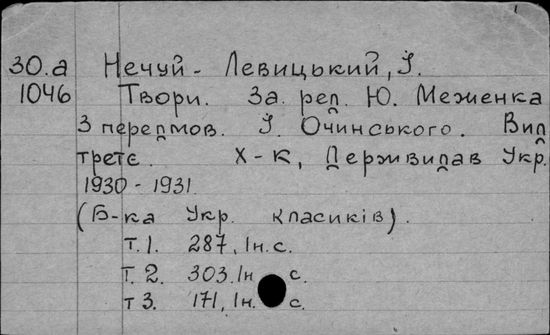 1
30.а Нечуй - Левицький, І.
1046 Твори. За. ред. Ю. Меженка
З передмов. І. Очинського. Вид
третє. Х-к, Держвидав Укр.
1930 - 1931.
(Б-ка Укр. класиків).
т. 1. 287, Ін. с.
т. 2. 303. Ін с.
т 3. 171, Ін. с.